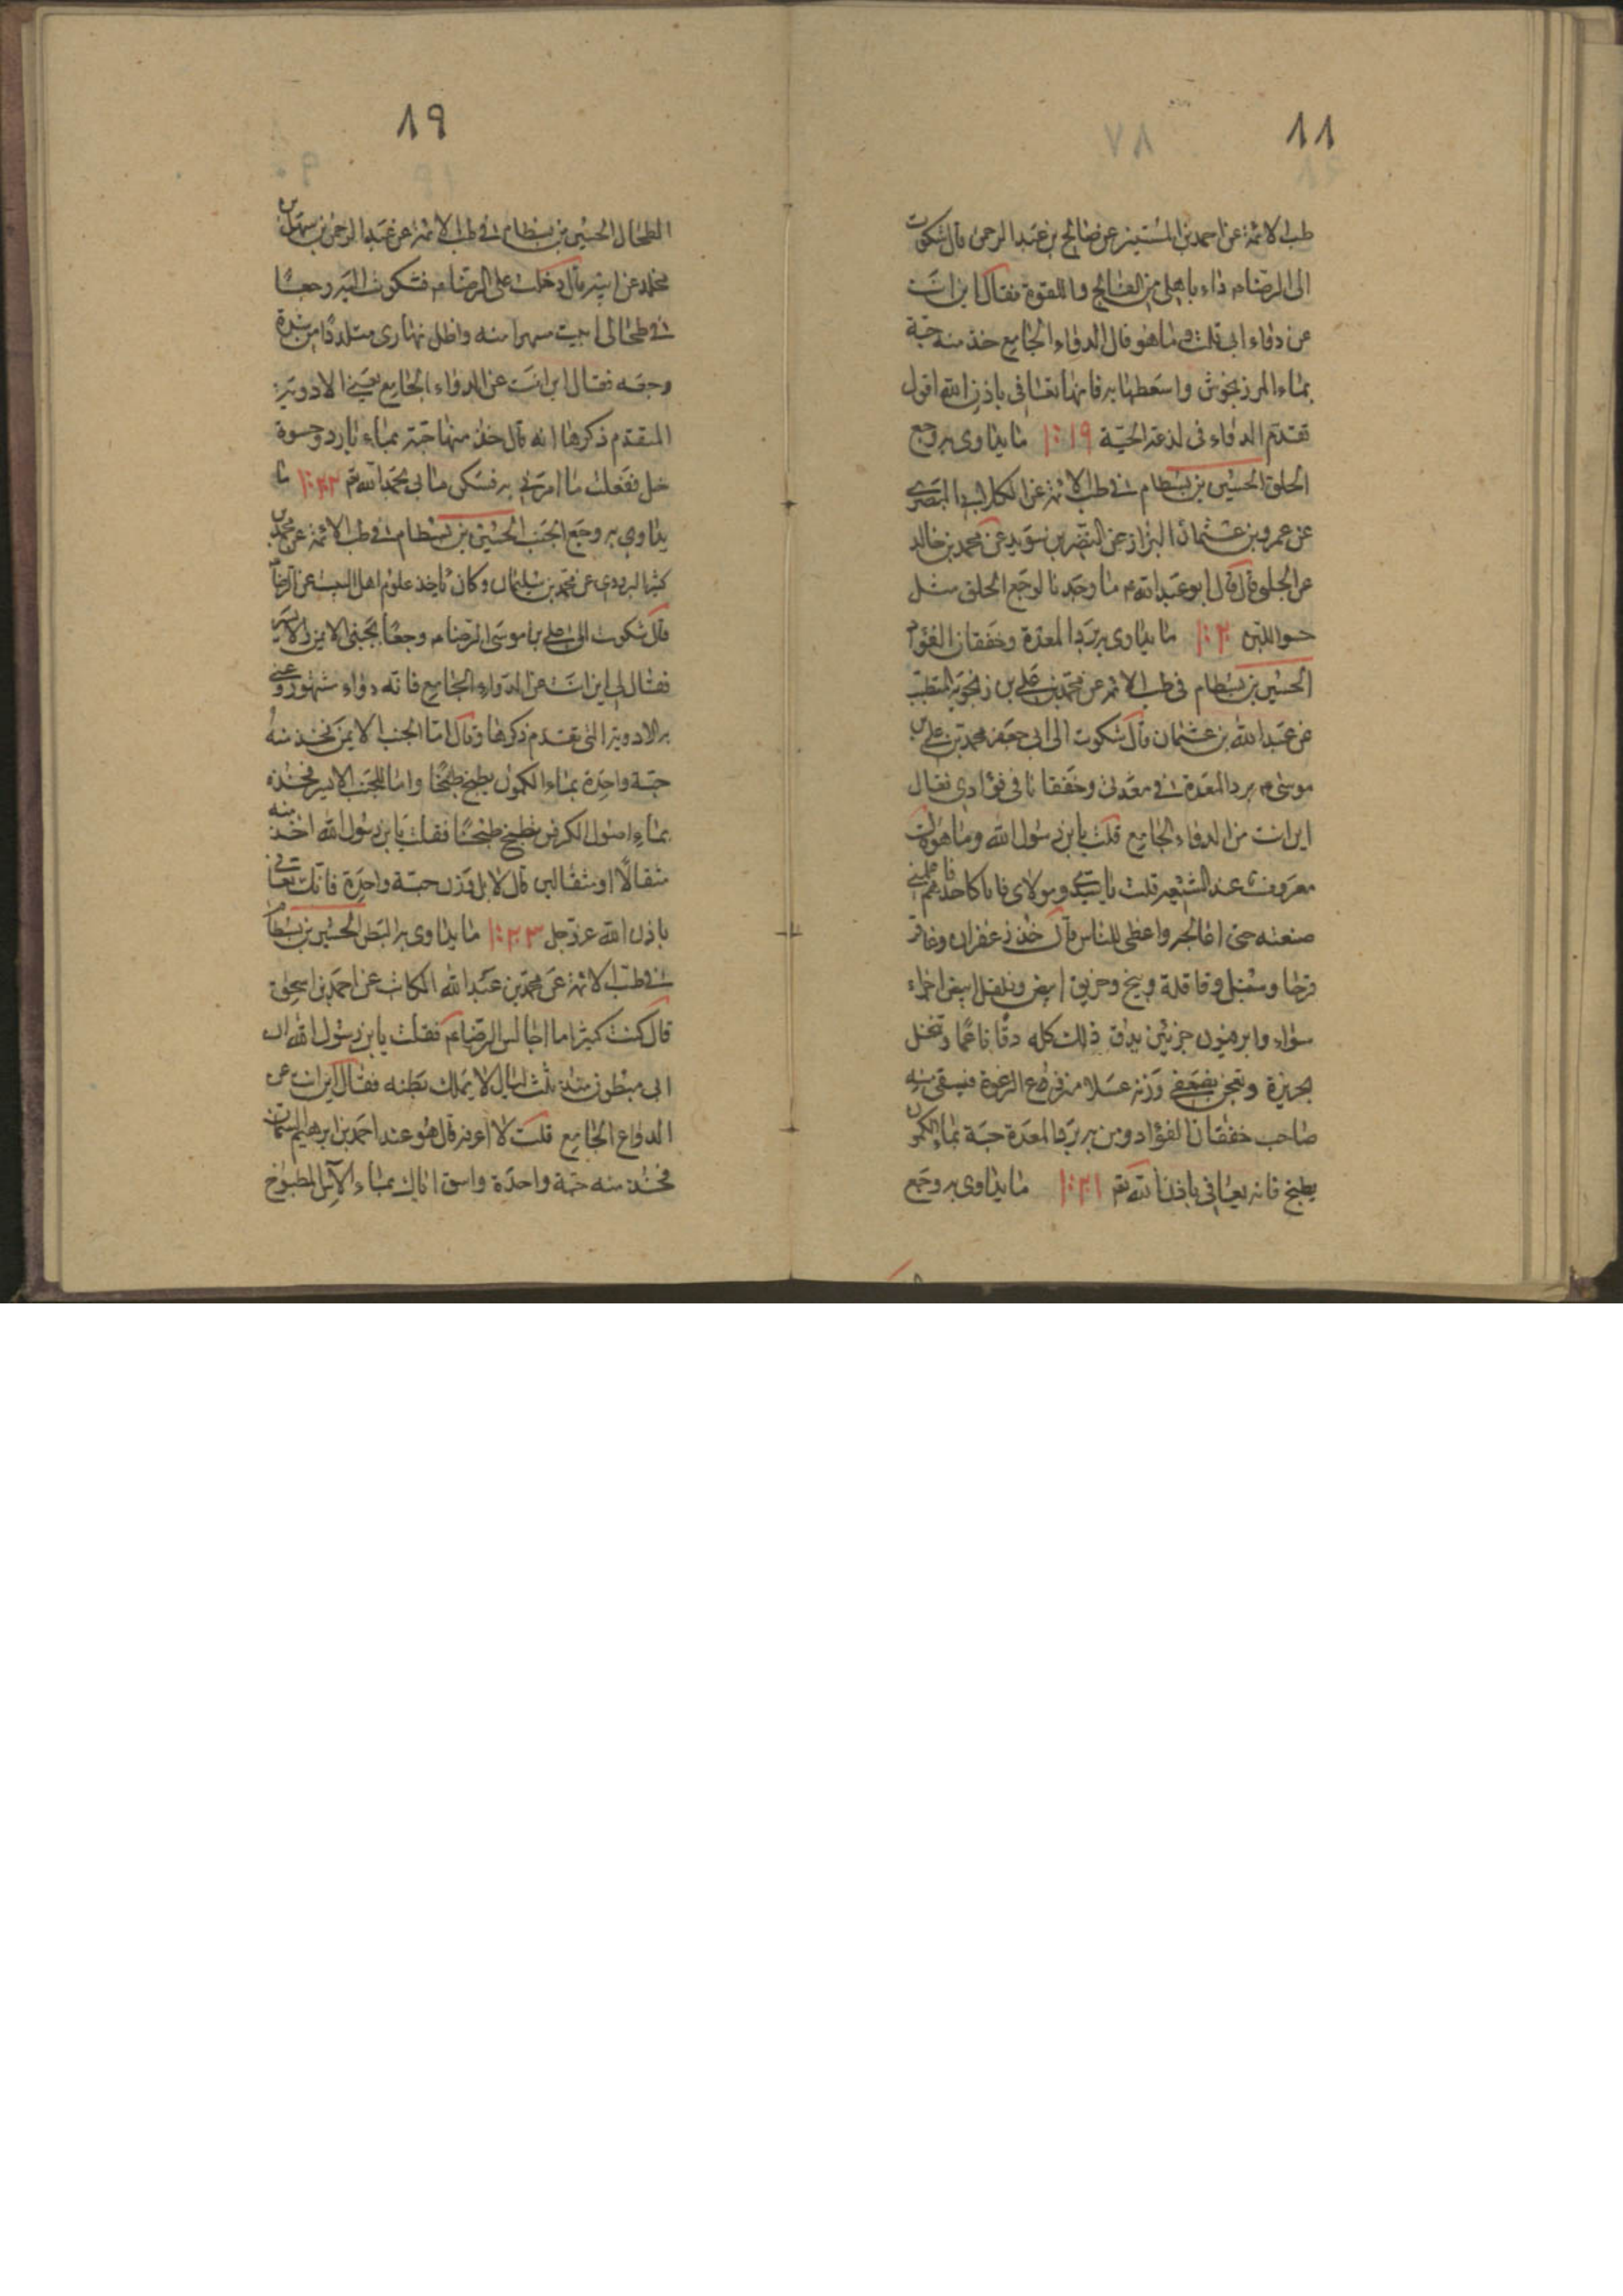 ٨٨
طب الائمة عن احمد بن المستعين عن صالح بن عبد الرحمن قال شكوت
الى الرضا م داء باهلى من الفالج واللقوة فقال اين انت
من دواء ابى قلت وما هو قال الدواء الجامع خذ منه حبة
بماء المرزنجوش واسعطها به فانها تعافى باذن الله اقول
تقدم الدواء فى لدغة الحية ١٠١٩ ما يداوى به وجع
الحلق الحسين بن بسطام فى طب الائمة عن الكلابى البصرى
عن عمرو بن عثمان البزاز عن النضر بن سويد عن محمد بن خالد
عن الحلبى قال قال ابو عبد الله م ما وجدنا لوجع الحلق مثل
حسو اللبن ١٠٢٠ ما يداوى به برد المعدة وخفقان الفؤاد
الحسين بن بسطام فى طب الائمة عن محمد بن على بن زنجويه المتطبب
عن عبد الله بن عثمان قال شكوت الى ابى جعفر محمد بن على بن
موسى م برد المعدة فى معدتى وخفقانا فى فؤادى فقال
اين انت من الدواء الجامع قلت يا بن رسول الله وما هو قال
معروف عند الشيعة قلت يا سيدى ومولاى فانا كاحدهم فاعلمنى
صنعته حتى اعالجه واعطى للناس قال خذ زعفران وعاقر
قرحا وسنبل وقاقلة وبنج وخربق ابيض وفلفل ابيض اجزاء
سواء وابرفيون جزئين يدق ذلك كله دقا ناعما وتنخل
بحريرة وتعجن بضعفى وزنه عسلا منزوع الرغوة فيسقى منه
صاحب خفقان الفؤاد ومن به برد المعدة حبة بماء الكمون
يطبخ فانه يعافى باذن الله تع ١٠٢١ ما يداوى به وجع
٨٩
الطحال الحسين بن بسطام فى طب الائمة عن عبد الرحمن بن سهل بن
مخلد عن ابيه قال دخلت على الرضا م فشكوت اليه وجعا
فى طحالى ابيت مسهرا منه واظل نهارى متلبدا من شدة
وجعه فقال اين انت عن الدواء الجامع يعنى الادوية
المتقدم ذكرها انه قال خذ منها حبة بماء بارد وحسوة
خل ففعلت ما امرنى به فسكن ما بى بحمد الله تع ١٠٢٢ ما
يداوى به وجع الجنب الحسين بن بسطام فى طب الائمة عن محمد بن
كثير البرودى عن محمد بن سليمان وكان ياخذ علوم اهل البيت عن الرضا
قال شكوت الى على بن موسى الرضا م وجعا بجنبى الايمن والايسر
فقال لى اين انت عن الدواء الجامع فانه دواء مشهور وعنى
به الادوية التى تقدم ذكرها وقال اما الجنب الايمن فخذ منه
حبة واحدة بماء الكمون يطبخ طبخا واما للجنب الايسر فخذه
بماء اصول الكرفس يطبخ طبخا فقلت يا بن رسول الله اخذ منه
مثقالا او مثقالين قال لا بل وزن حبة واحدة فانك تعافى
باذن الله عز وجل ١٠٢٣ ما يداوى به البطن الحسين بن بسطام
فى طب الائمة عن محمد بن عبد الله الكاتب عن احمد بن اسحق
قال كنت كثيرا ما اجالس الرضا م فقلت يا بن رسول الله ان
ابى مبطون منذ ثلث ليال لا يملك بطنه فقال اين انت عن
الدواء الجامع قلت لا اعرفه قال هو عند احمد بن ابرهيم التمار
فخذ منه حبة واحدة واسق اباك بماء الآس المطبوخ